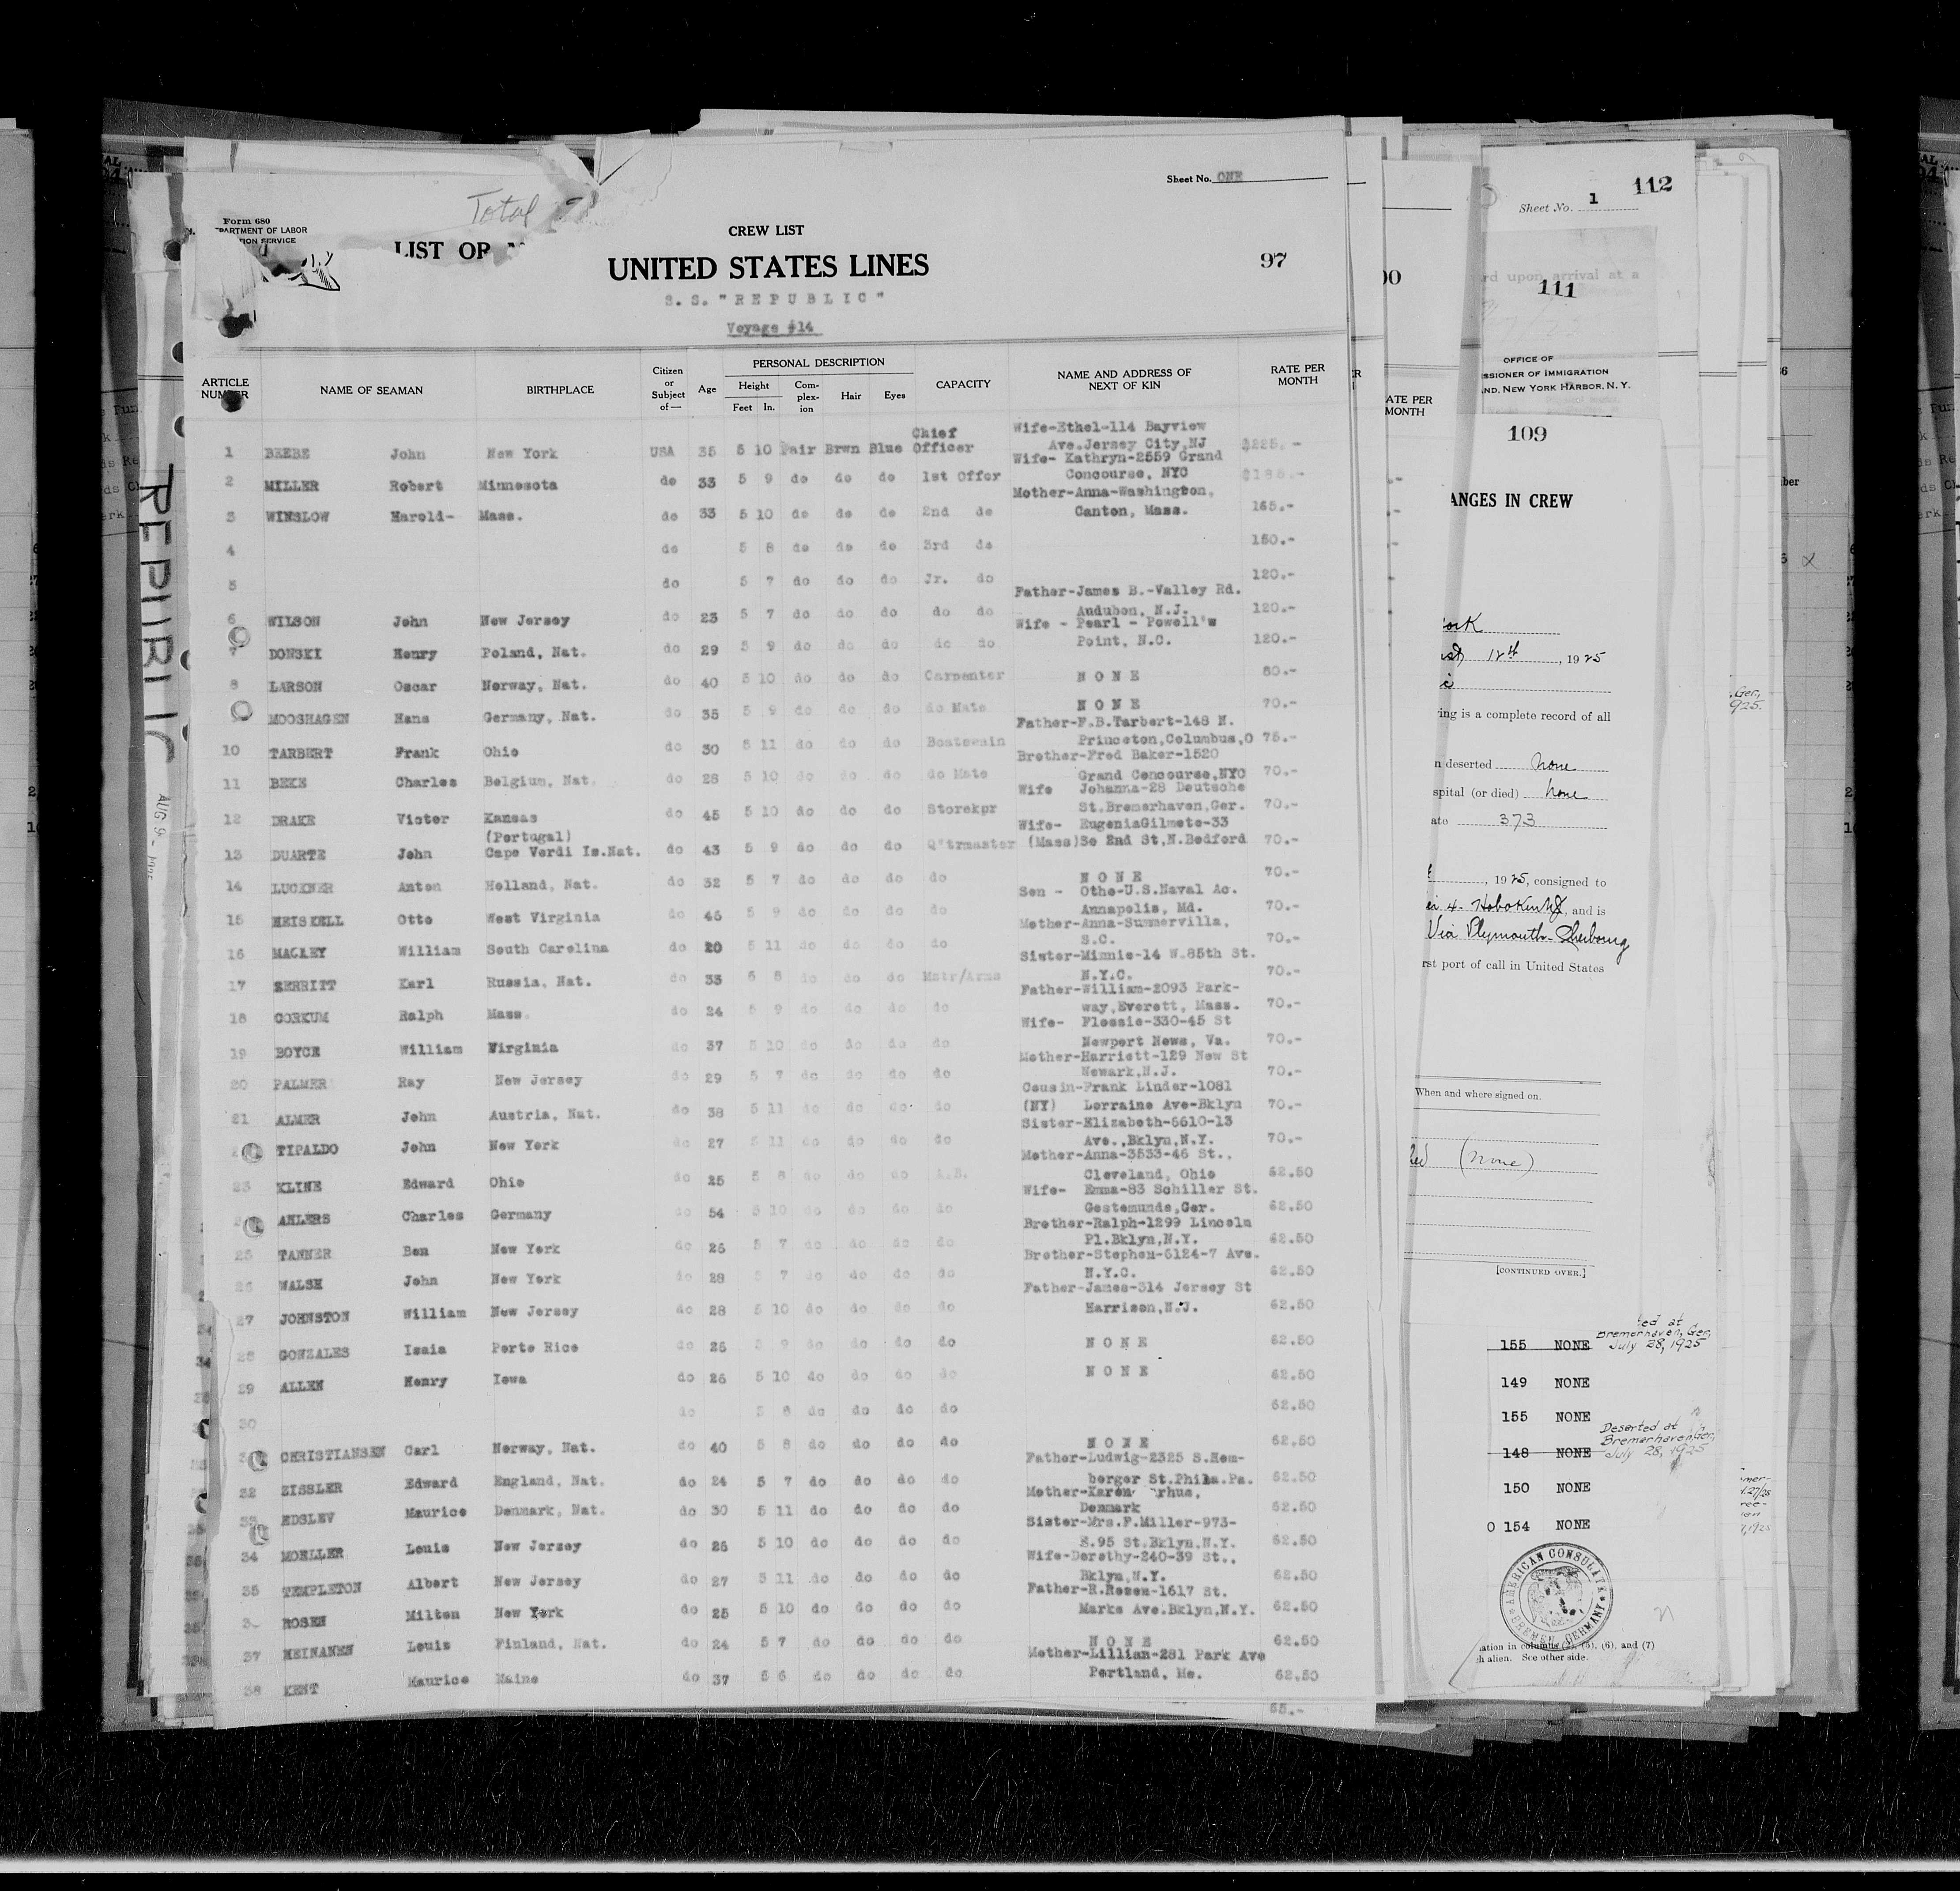 Sheet No. ONE
Total
Form 680
CREW LIST
LIST OR
UNITED STATES LINES
97
S. S. "REPUBLIC"
Voyage #14
ARTICLE NUMBER NAME OF SEAMAN BIRTHPLACE Citizen or Subject of— Age PERSONAL DESCRIPTION Height Feet In. Complexion Hair Eyes CAPACITY NAME AND ADDRESS OF NEXT OF KIN RATE PER MONTH
1 BEEBE John New York USA 35 5 10 Fair Brwn Blue Chief Officer Wife-Ethel-114 Bayview Ave.Jersey City,NJ $225.-
2 MILLER Robert Minnesota do 33 5 9 do do do 1st Offer Wife- Kathryn-2559 Grand Concourse, NYC $185.-
3 WINSLOW Harold- Mass. do 33 5 10 do do do 2nd do Mother-Anna-Washington, Canton, Mass. 165.-
4 do 5 8 do do do 3rd do 150.-
5 do 5 7 do do do Jr. do 120.-
6 WILSON John New Jersey do 23 5 7 do do do do do Father-James B.-Valley Rd. Audubon, N.J. 120.-
7 DONSKI Henry Poland, Nat. do 29 5 9 do do do do do Wife - Pearl - Powell's Point, N.C. 120.-
8 LARSON Oscar Norway, Nat. do 40 5 10 do do do Carpenter NONE 80.-
MOOSHAGEN Hans Germany, Nat. do 35 5 9 do do do do Mate NONE 70.-
10 TARBERT Frank Ohio do 30 5 11 do do do Boatswain Father-F.B.Tarbert-148 N. Princeton,Columbus,O 75.-
11 BEKE Charles Belgium, Nat. do 28 5 10 do do do do Mate Brother-Fred Baker-1520 Grand Concourse,NYC 70.-
12 DRAKE Victor Kansas do 45 5 10 do do do Storekpr Wife Johanna-28 Deutsche St.Bremerhaven,Ger. 70.-
13 DUARTE John (Portugal) Cape Verdi Is.Nat. do 43 5 9 do do do Q'trmaster Wife- EugeniaGilmete-33 (Mass)So 2nd St,N.Bedford 70.-
14 LUCKNER Anton Holland, Nat. do 32 5 7 do do do do NONE 70.-
15 HEISKELL Otto West Virginia do 45 5 9 do do do do Son - Otho-U.S.Naval Ac. Annapolis, Md. 70.-
16 MACKEY William South Carolina do 20 5 11 do do do do Mother-Anna-Summervilla, S.C. 70.-
17 Karl Russia, Nat. do 33 5 8 do do do Mstr/Arms Sister-Minnie-14 W.85th St. N.Y.C. 70.-
18 CORKUM Ralph Mass. do 24 5 9 do do do do Father-William-2093 Park- way,Everett, Mass. 70.-
19 BOYCE William Virginia do 37 5 10 do do do do Wife- Flossie-330-45 St Newport News, Va. 70.-
20 PALMER Ray New Jersey do 29 5 7 do do do do Mother-Harriett-129 New St Newark,N.J. 70.-
21 ALMER John Austria, Nat. do 38 5 11 do do do do Cousin-Frank Linder-1081 (NY) Lorraine Ave-Bklyn 70.-
TIPALDO John New York do 27 5 11 do do do do Sister-Elizabeth-6610-13 Ave.,Bklyn,N.Y. 70.-
23 KLINE Edward Ohio do 25 5 8 do do do A.B. Mother-Anna-3533-46 St., Cleveland, Ohio 62.50
AHLERS Charles Germany do 54 5 10 do do do do Wife- Emma-83 Schiller St. Gestemunde,Ger. 62.50
25 TANNER Ben New York do 26 5 7 do do do do Brother-Ralph-1299 Lincoln Pl.Bklyn,N.Y. 62.50
26 WALSH John New York do 28 5 7 do do do do Brother-Stephen-6124-7 Ave. N.Y.C. 62.50
27 JOHNSTON William New Jersey do 28 5 10 do do do do Father-James-314 Jersey St Harrison,N.J. 62.50
28 GONZALES Isaia Porto Rico do 26 5 9 do do do do NONE 62.50
29 ALLEN Henry Iowa do 26 5 10 do do do do NONE 62.50
30 do 5 8 do do do do 62.50
CHRISTIANSEN Carl Norway, Nat. do 40 5 8 do do do do NONE 62.50
32 ZISSLER Edward England, Nat. do 24 5 7 do do do do Father-Ludwig-2325 S.Hem- berger St.Phila.Pa. 62.50
33 EDSLEV Maurice Denmark, Nat. do 30 5 11 do do do do Mother-Karen rhus, Denmark 62.50
34 MOELLER Louis New Jersey do 26 5 10 do do do do Sister-Mrs.F.Miller-973- E.95 St.Bklyn,N.Y. 62.50
35 TEMPLETON Albert New Jersey do 27 5 11 do do do do Wife-Dorothy-240-39 St., Bklyn,N.Y. 62.50
ROSEN Milton New York do 25 5 10 do do do do Father-R.Rosen-1617 St. Marks Ave.Bklyn,N.Y. 62.50
37 HEINANEN Louis Finland, Nat. do 24 5 7 do do do do NONE 62.50
38 KENT Maurice Maine do 37 5 6 do do do do Mother-Lillian-281 Park Ave Portland, Me. 62.50
55.-
REPUBLIC
AUG 9-
Sheet No. 1
112
rd upon arrival at a
111
OFFICE OF
SSIONER OF IMMIGRATION
ND, NEW YORK HARBOR, N. Y.
ATE PER MONTH
109
ANGES IN CREW
ork
12th, 1925
ring is a complete record of all
n deserted none
spital (or died) none
ate 373
, 1925, consigned to
4. Hoboken NJ, and is
Via Plymouth-Cherbourg
rst port of call in United States
When and where signed on.
(none)
[CONTINUED OVER.]
ted at Bremerhaven, Ger, July 28, 1925
155 NONE
149 NONE
155 NONE
Deserted at Bremerhaven, Ger, July 28, 1925
148 NONE
150 NONE
0 154 NONE
AMERICAN CONSULATE
BREMEN GERMANY
ation in columns (5), (6), and (7)
h alien. See other side.